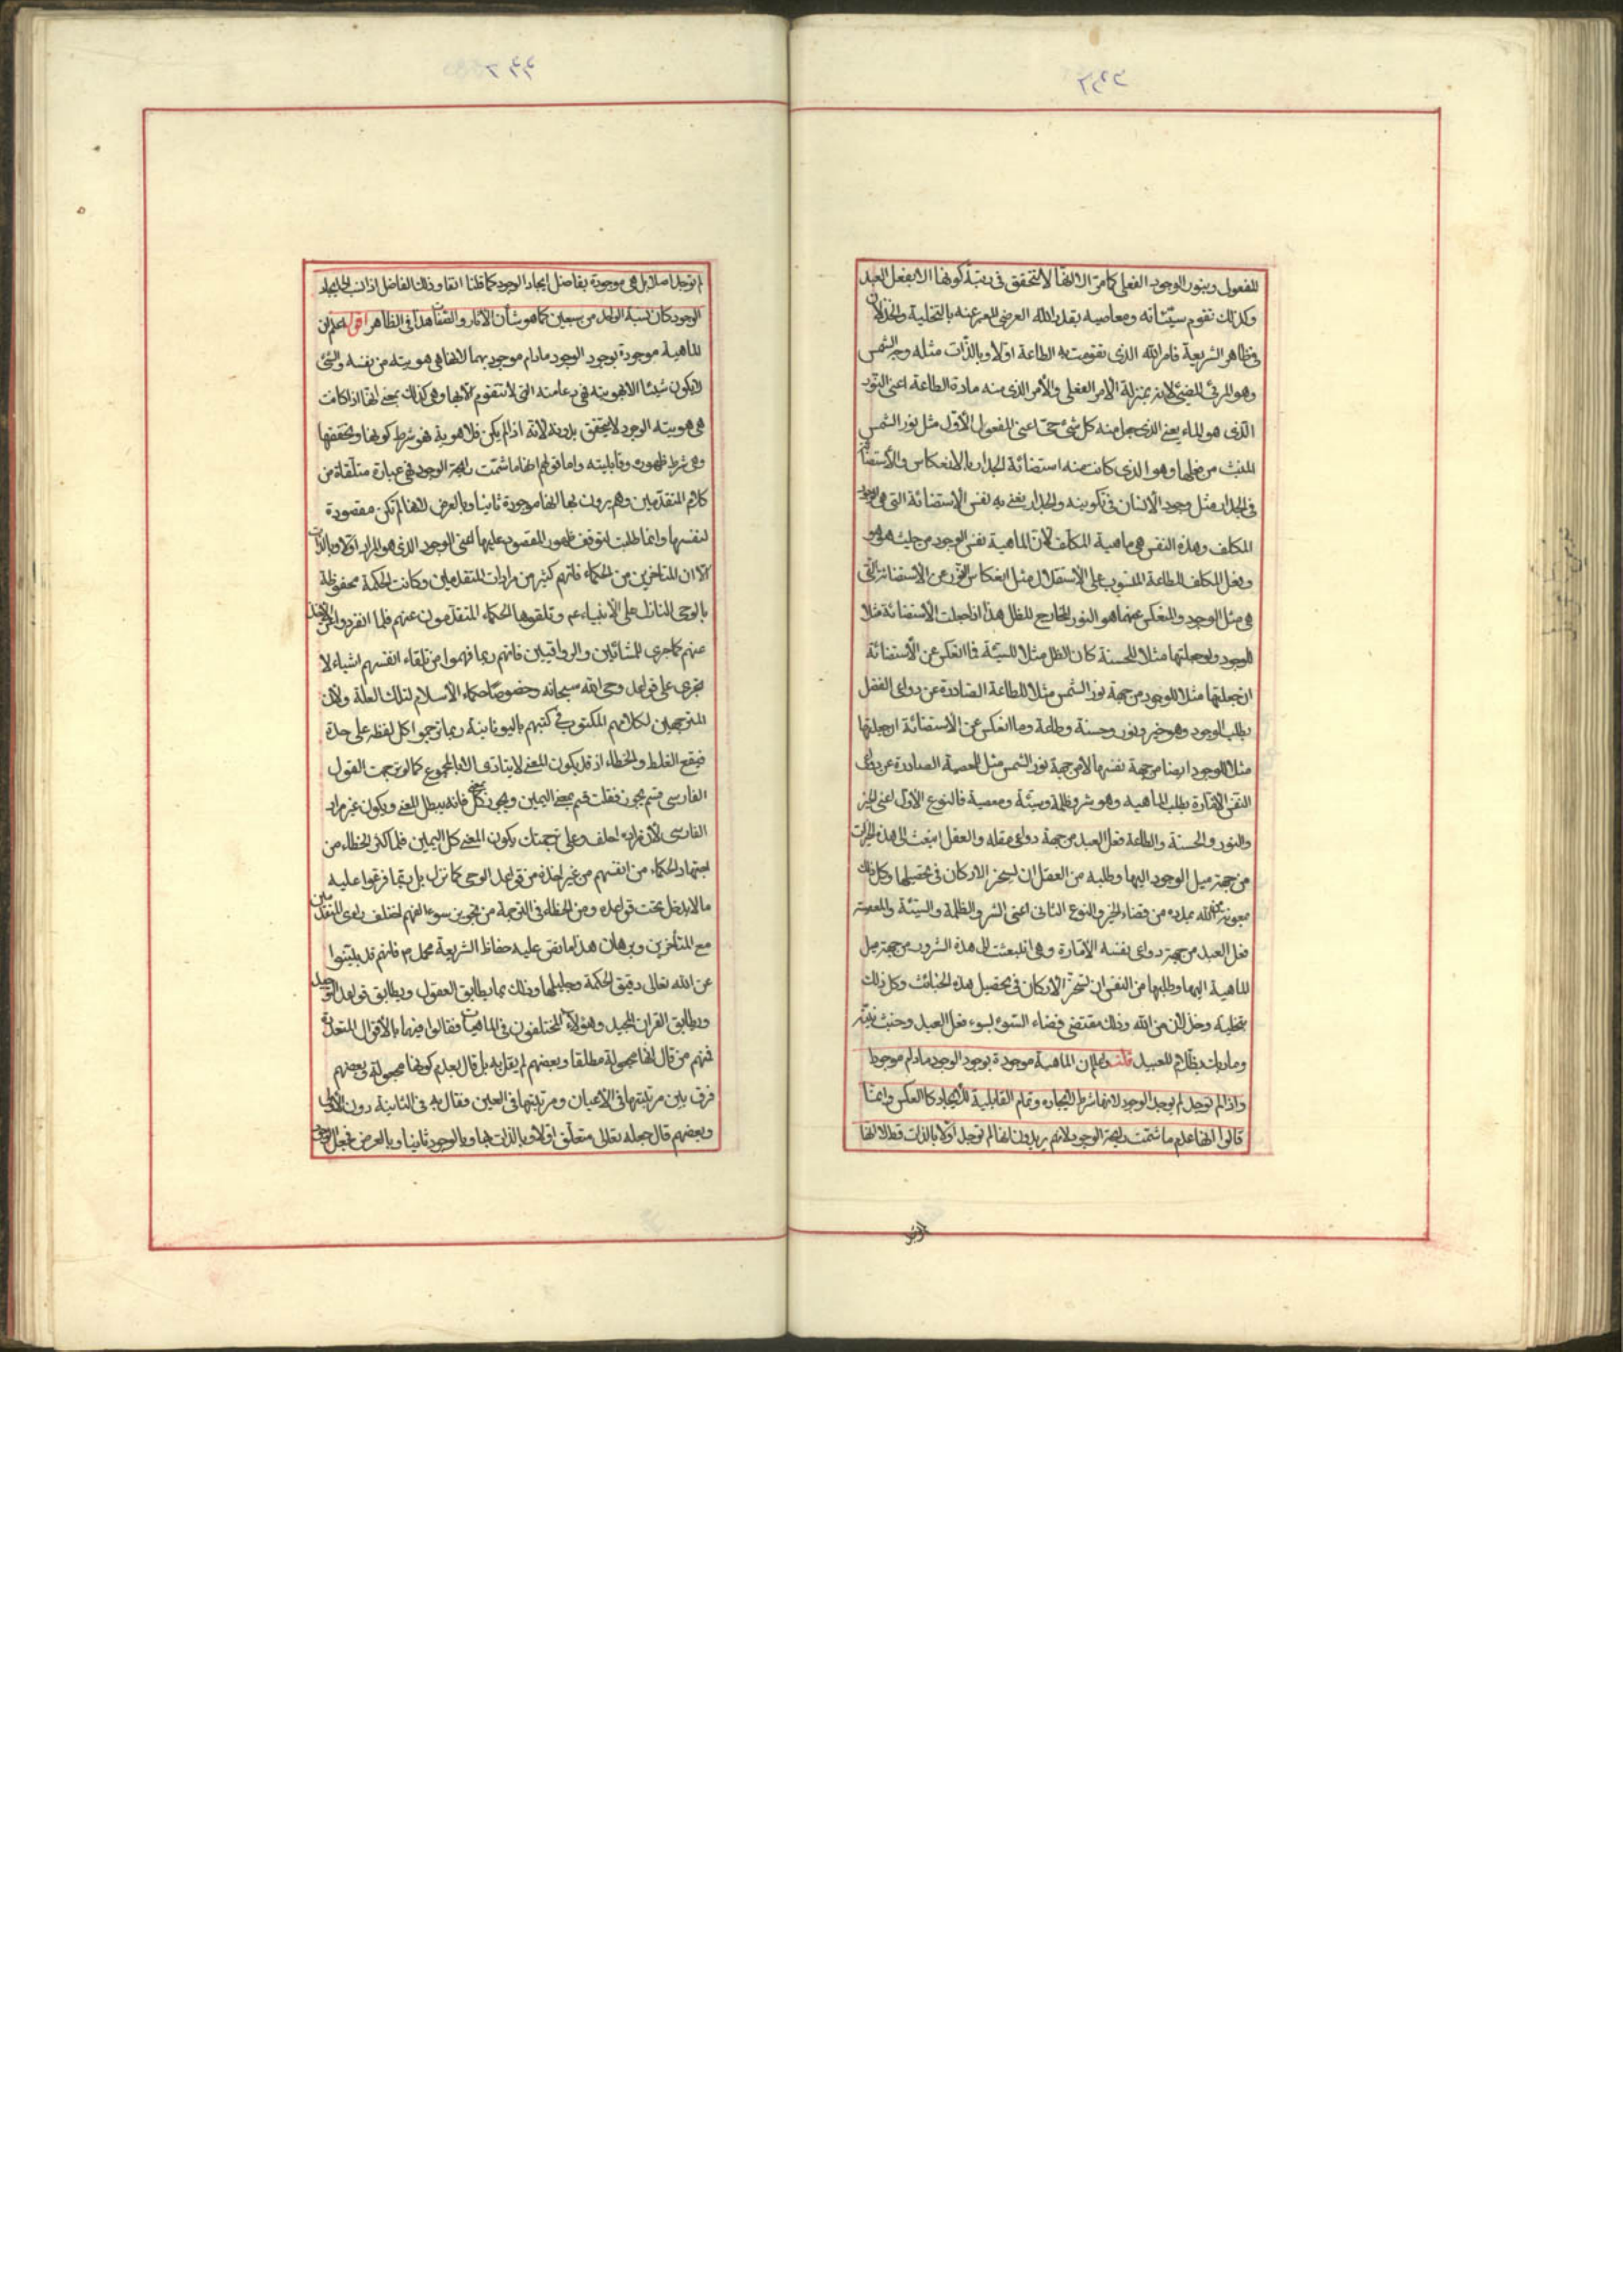 للمفعول وبنور الوجود الفعلي كما مرّ الا انها لا تتحقق في رتبة كونها الا بفعل العبد
وكذلك تقوم سيّئاته ومعاصيه بقدر الله العرضي المعبر عنه بالتخلية والخذلان
في ظاهر الشريعة فامر الله الذي تقومت به الطاعة اوّلا وبالذّات مثله وجه الشمس
وهو المرئي المضيء لانه بمنزلة الامر الفعلي والأمر الذي منه مادة الطاعة اعني النور
الّذي هو الماء يعني الذي جعل منه كل شيء حيّ اعني المفعول الأوّل مثل نور الشمس
المنبث من فعلها وهو الذي كانت منه استضائة الجدار بالانعكاس والأستضائة
في الجدار مثل وجود الأنسان في تكوينه والجدار يعني به نفس الإستضائة التي هي وجود
المكلف وهذه النفس هي ماهية المكلف لأنّ الماهية نفس الوجود من حيث هو هو
وفعل المكلف للطاعة المنسوب على الأستقلال مثل انعكاس النور عن الأستضائة التي
هي مثل الوجود والمنعكس عنهما هو النور الخارج للظل هذا اذا جعلت الأستضائة مثلا
للوجود ولو جعلتها مثلا للحسنة كان الظل مثلا للسيّئة فما انعكس عن الأستضائة
ان جعلتها مثلا للوجود من جهة نور الشمس مثلا للطاعة الصادرة عن دواعي العقل
بطلب الوجود وهو خير ونور وحسنة وطاعة وما انعكس عن الاستضائة ان جعلتها
مثلا للوجود ايضا من جهة نفسها لا من جهة نور الشمس مثل المعصية الصادرة عن دواعي
النفس الامّارة بطلب الماهية وهو شر وظلمة وسيّئة ومعصية فالنوع الاول اعني الخير
والنور والحسنة والطاعة فعل العبد من جهة دواعي عقله والعقل انبعث الى هذه الخيرات
من جهة ميل الوجود اليها وطلبه من العقل ان يسخر الاركان في تحصيلها وكل ذلك
بمعونة الله بمدده من قضاء الخير والنوع الثاني اعني الشر والظلمة والسيّئة والمعصية
فعل العبد من جهة دواعي نفسه الأمّارة وهي انبعثت الى هذه الشرور من جهة ميل
الماهية اليها وطلبها من النفس ان تسخر الاركان في تحصيل هذه الخبائث وكل ذلك
بتخلية وخذلان من الله وذلك مقتضى قضاء السّوء لسوء فعل العبد وخبث نيته
وما ربك بظلام للعبيد قلت واعلم ان الماهية موجودة بوجود الوجود ما دام موجودا
واذا لم توجد لم يوجد الوجود لانها شرط لايجاده وتمام القابلية للأيجاد كالعكس وانما
قالوا انها عدم ما شمّت رايحة الوجود لانهم يريدون انها لم توجد اوّلا بالذات قط لا انها
الوجود
لم توجد اصلا بل هي موجودة بفاضل ايجاد الوجود كما قلنا انفا وذلك الفاضل اذا نسب الى ايجاد
الوجود كان نسبة الواحد من سبعين كما هو شأن الآثار والصفات هذا في الظاهر اقول اعلم ان
الماهية موجودة بوجود الوجود ما دام موجود بهما لانها هي هويته من نفسه والشيء
لا يكون شيئا الا بهويته فهي دعامته التي لا يتقوم الّا بها وهي كذلك يعني انها اذا كانت
هي هويته الوجود لا يتحقق بدونه لانه اذا لم يكن فلا هوية فهو شرط كونها وتحققها
وهي شرط ظهوره وقابليته واما قولهم انها ما شمّت رائحة الوجود فهي عبارة متلقاة من
كلام المتقدمين وهم يرون بها انها موجودة ثانيا وبالعرض لانها لم تكن مقصودة
لنفسها وانما طلبت لتوقف ظهور المقصود عليها اعني الوجود الذي هو المراد اوّلا وبالذات
الّا ان المتاخرين من الحكماء فاتهم كثير من مرادات المتقدمين وكانت الحكمة محفوظة
بالوحي النازل على الأنبياء عم وتلقوها الحكماء المتقدمون عنهم فلما انفردوا عن الأخذ
عنهم كما جرى للمشائيين والرواقيين فانهم ربما فهموا من تلقاء انفسهم اشياء لا
تجري على قواعد وحي الله سبحانه وخصوصا حكماء الأسلام لتلك العلة ولأن
المترجمين لكلامهم المكتوب في كتبهم باليونانية ربما ترجموا كل لفظة على حدة
فيقع الغلط والخطاء اذ قد يكون المعنى لا يتادى الا بالمجموع كما لو ترجمت القول
الفارسي قسم بخور فقلت قسم بمعنى اليمين وبخور بمعنى كل فانه يبطل المعنى ويكون غير مراد
الفارسي لأن مراده احلف وعلى ترجمتك يكون المعنى كل اليمين فلما كثر الخطاء من
اجتهاد الحكماء من انفسهم من غير اخذه من قواعد الوحي كما نزل بل ربّما فرعوا عليه
ما لا يدخل تحت قواعده ومن الخطاء في الترجمة من تجويز سوء الفهم اختلف راي المتقدمين
مع المتأخرين وبرهان هذا ما نص عليه حفاظ الشريعة محمد م فانهم قد بيّنوا
عن الله تعالى دقيق الحكمة وجليلها وذلك بما يطابق العقول ويطابق قواعد التوحيد
ويطابق القران المجيد وهؤلاء المختلفون في الماهيات فقالوا فيها بالأقوال المتعددة
فمنهم من قال انها مجعولة مطلقا وبعضهم لم يقل به بل قال بعدم كونها مجعولة وبعضهم
فرق بين مرتبتها في الأعيان ومرتبتها في العين فقال به في الثانية دون الأولى
وبعضهم قال جعله تعالى متعلق اوّلا وبالذات بها وبالوجود ثانيا وبالعرض فجعل الوجود